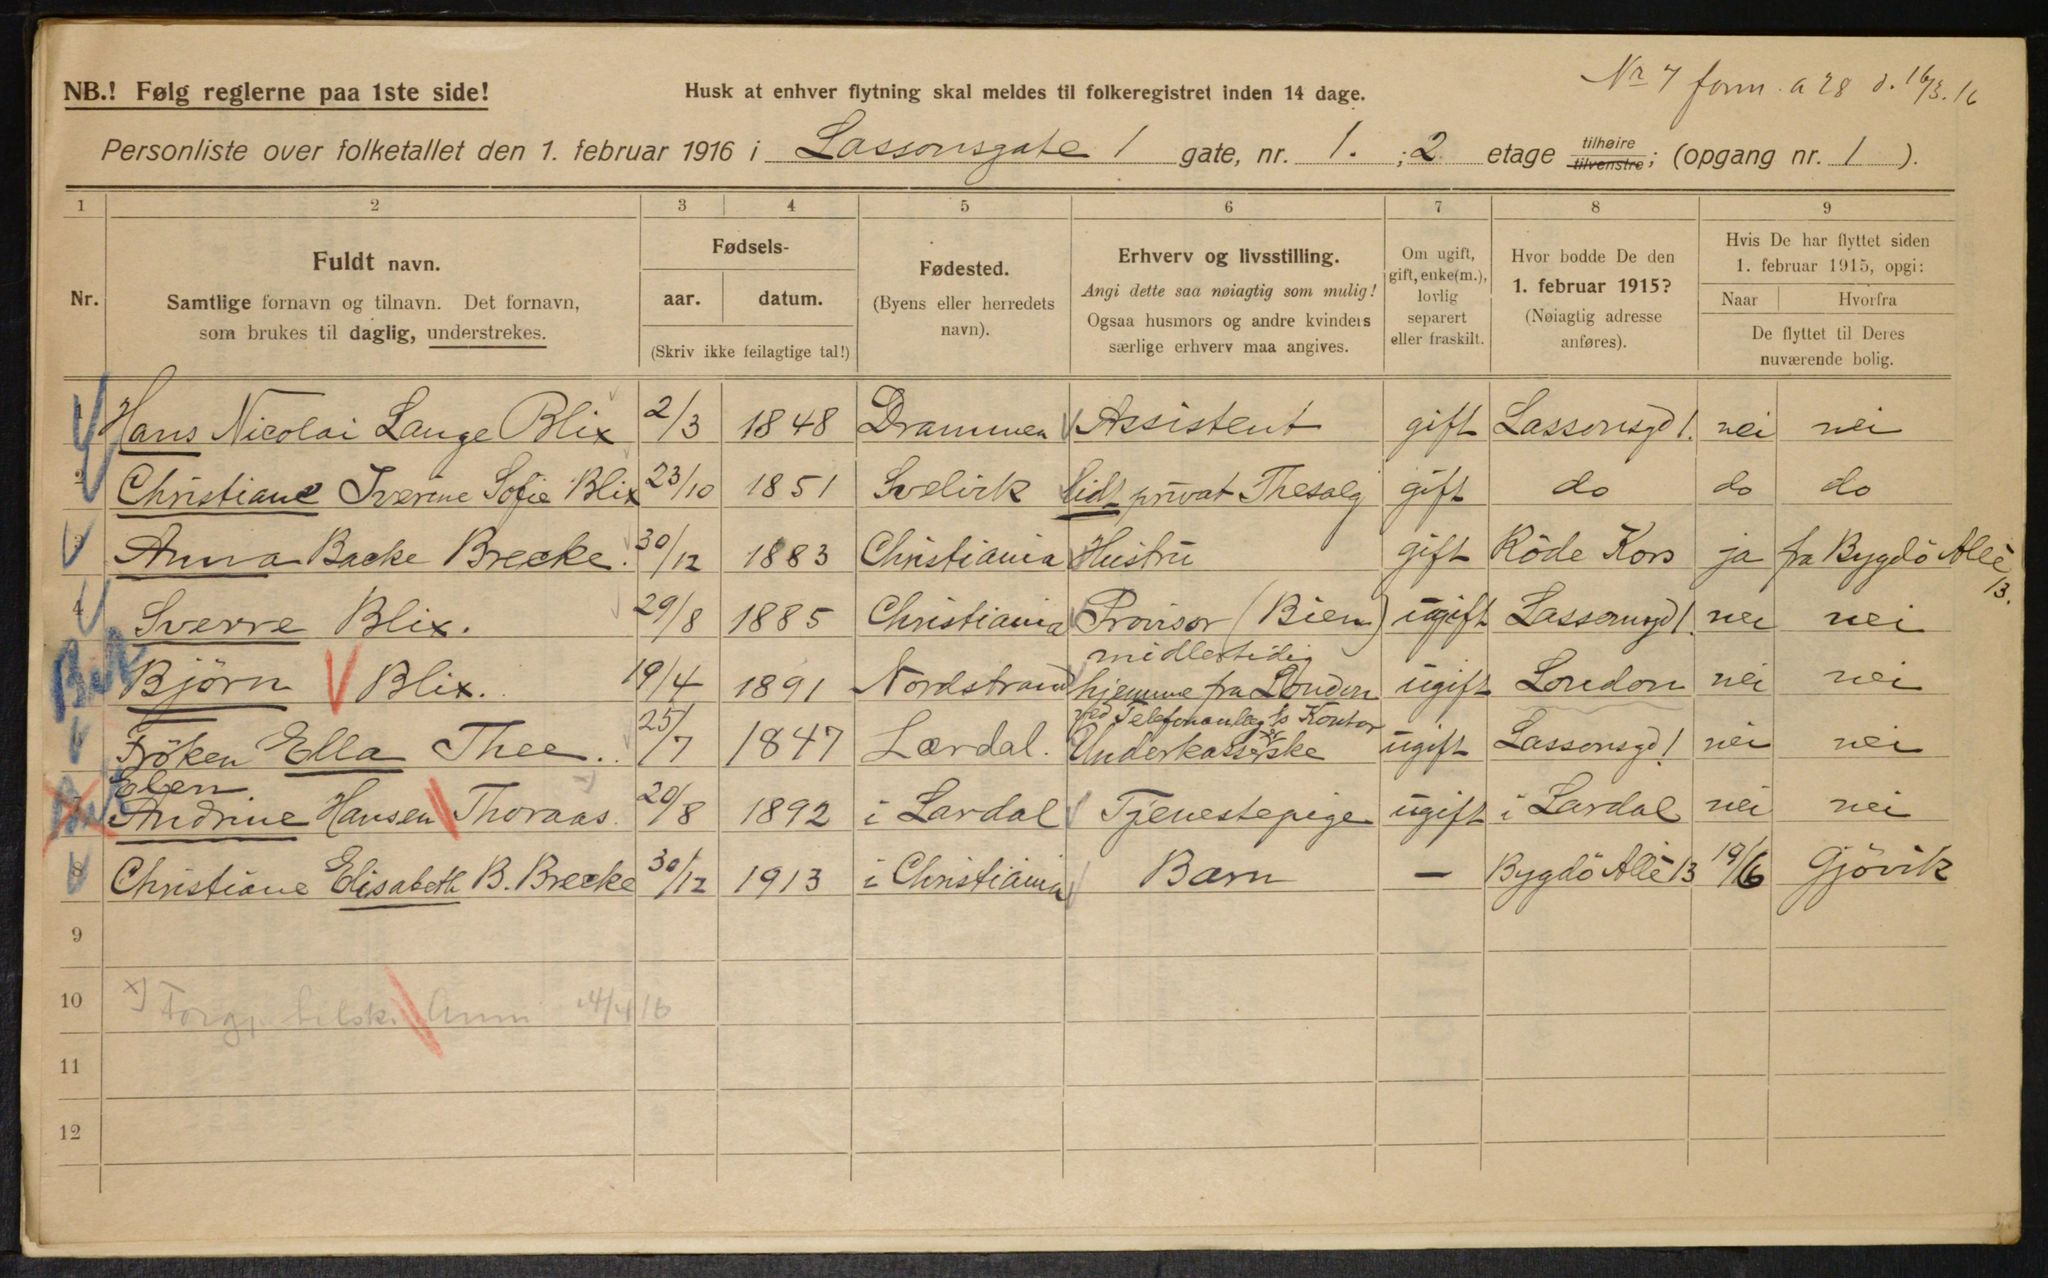 Nr 7 form. a 28 d. 16/3.16
NB.! Følg reglerne paa 1ste side!
Husk at enhver flytning skal meldes til folkeregistret inden 14 dage.
Personliste over folketallet den 1. februar 1916 i Lassonsgate 1 gate, nr. 1. ; 2 etage tilhøire tilvenstre; (opgang nr. 1 ).
1 2 3 4 5 6 7 8 9
Nr.
Fuldt navn.
Samtlige fornavn og tilnavn. Det fornavn,
som brukes til daglig, understrekes.
Fødsels-
aar. datum.
(Skriv ikke feilagtige tal!)
Fødested.
(Byens eller herredets
navn).
Erhverv og livsstilling.
Angi dette saa nøiagtig som mulig!
Ogsaa husmors og andre kvinders
særlige erhverv maa angives.
Om ugift,
gift, enke(m.),
lovlig
separert
eller fraskilt.
Hvor bodde De den
1. februar 1915?
(Nøiagtig adresse
anføres).
Hvis De har flyttet siden
1. februar 1915, opgi:
Naar Hvorfra
De flyttet til Deres
nuværende bolig.
Hans Nicolai Lange Blix 2/3 1848 Drammen Assistent gift Lassonsgd 1. nei nei
2 Christiane Iverine Sofie Blix 23/10 1851 Svelvik lidt privat Thesalg gift do do do
3 Anna Backe Brecke. 30/12 1883 Christiania Hustru gift Röde Kors ja fra Bygdö Allè 13.
4 Sverre Blix. 29/8 1885 Christiania Provisor (Bien) ugift Lassonsgd 1. nei nei
Björn Blix. 19/4 1891 Nordstrand midlertidig hjemme fra London ugift London nei nei
Fröken Ella Thee. 25/7 1847 Lærdal. ved Telefonanlæg ts Kontor Underkasserske ugift Lassonsgd 1 nei nei
Elen
Andrine Hansen Thoraas. 20/8 1892 i Lardal Tjenestepige ugift i Lardal nei nei
8 Christiane Elisabeth B. Brecke 30/12 1913 i Christiania Barn — Bygdö Allè 13 19/6 Gjövik
9
10 x)
11
12